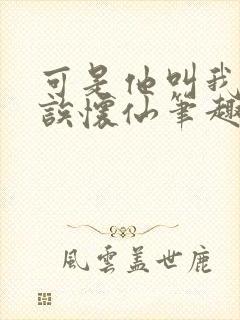 可是他叫我
誤懷仙筆趣
風雲蓋世鹿